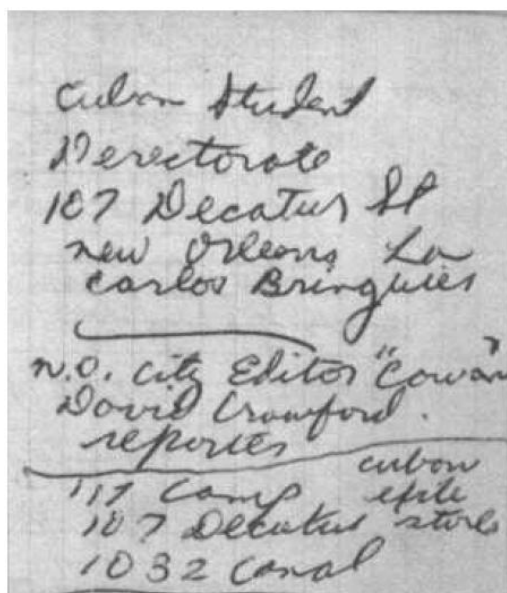 Cuban Student
Derectorate
107 Decatur St
New Orleans La
Carlos Bringuier
N.O. City Editor "Cowan"
David Crawford.
reporter
117 Camp
107 Decatur
1032 Canal
cuban
exile
store